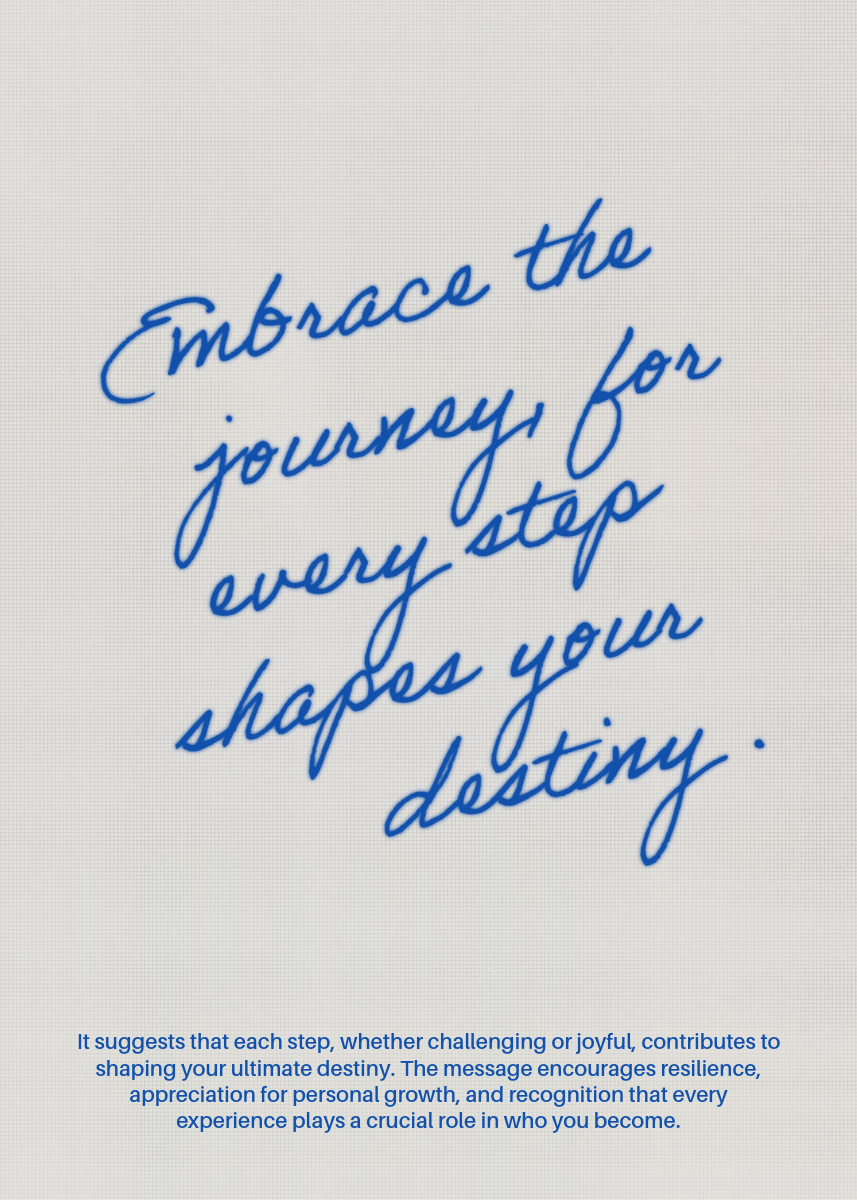 Embrace the
journey, for
every step
shapes your
destiny.
It suggests that each step, whether challenging or joyful, contributes to
shaping your ultimate destiny. The message encourages resilience,
appreciation for personal growth, and recognition that every
experience plays a crucial role in who you become.